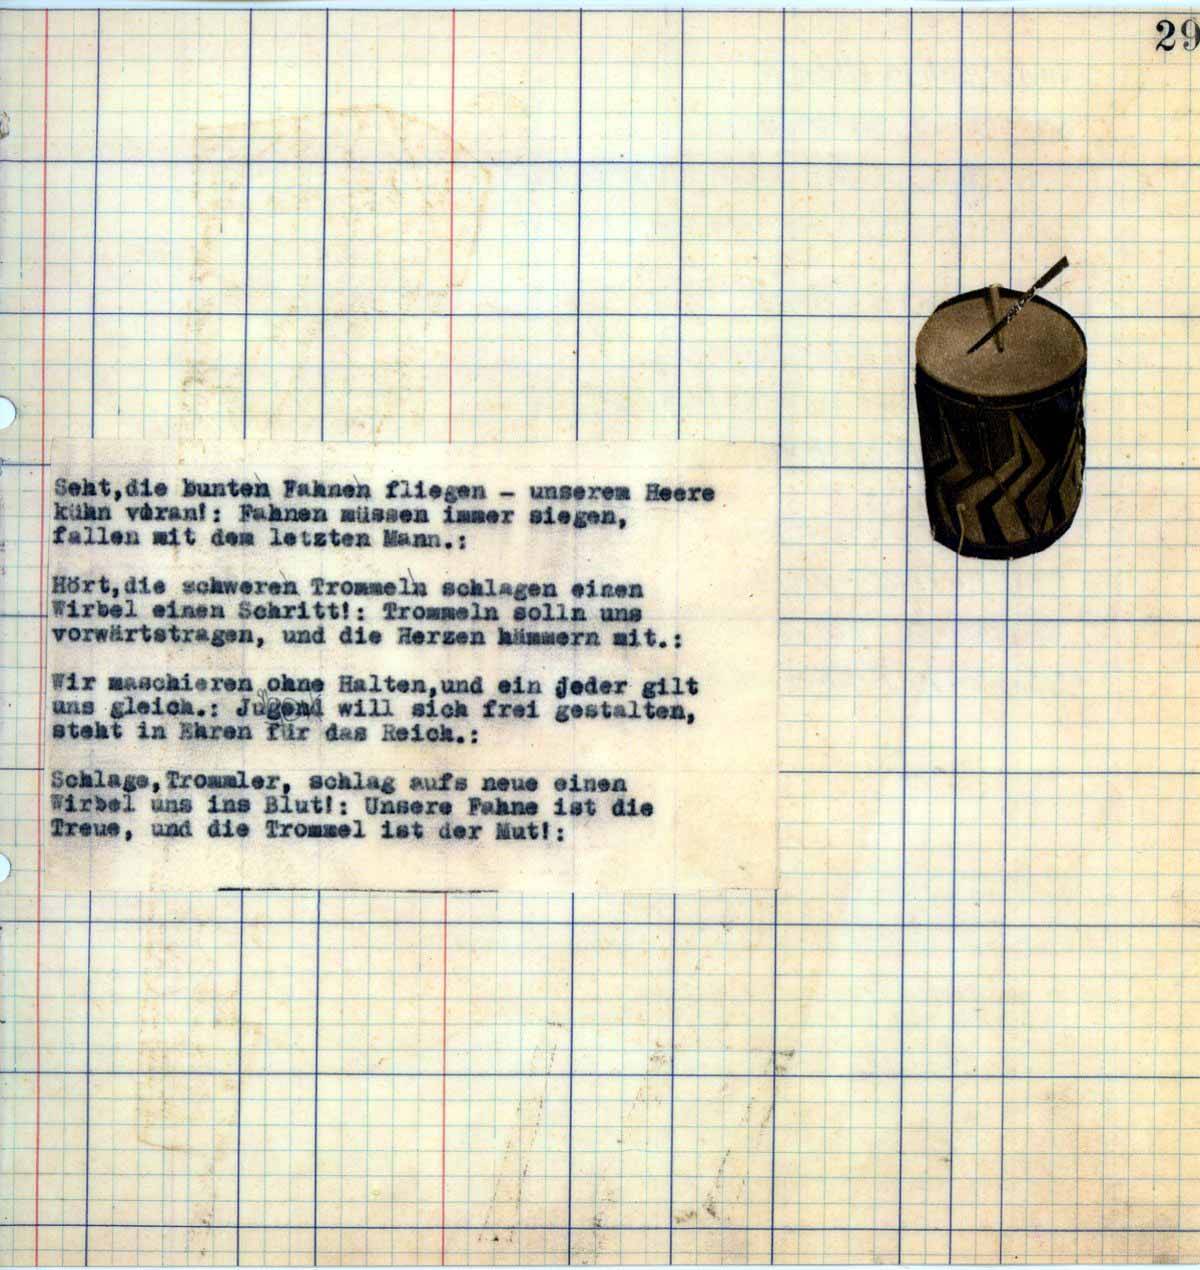 29
Seht,die bunten Fahnen fliegen - unserem Heere
kühn voran!: Fahnen müssen immer siegen,
fallen mit dem letzten Mann.:
Hört,die schweren Trommeln schlagen einen
Wirbel einen Schritt!: Trommeln solln uns
vorwärtstragen, und die Herzen hämmern mit.:
Wir maschieren ohne Halten,und ein jeder gilt
uns gleich.: Jugend will sich frei gestalten,
steht in Ehren für das Reich.:
Schlage,Trommler, schlag aufs neue einen
Wirbel uns ins Blut!: Unsere Fahne ist die
Treue, und die Trommel ist der Mut!: